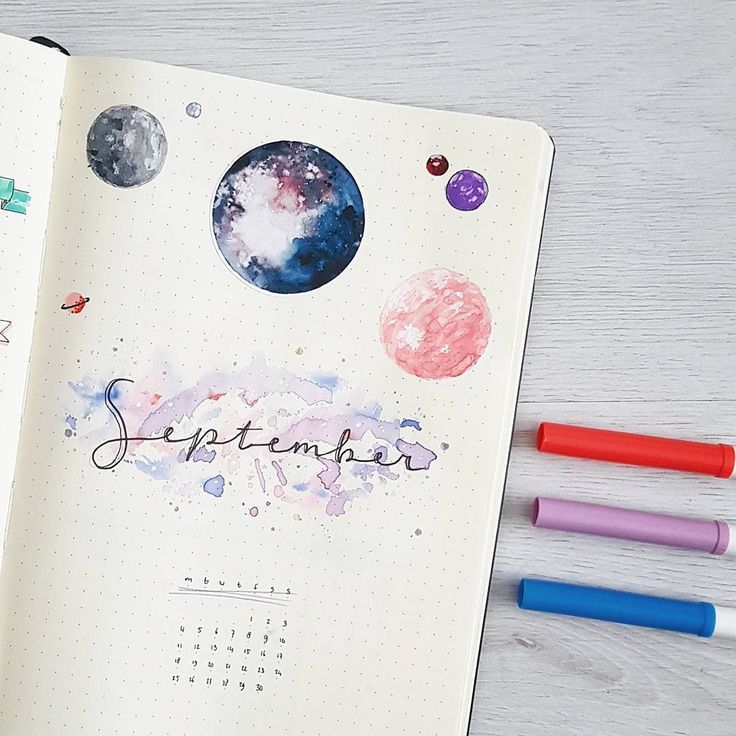 September
m t w t f s s
1 2 3
4 5 6 7 8 9 10
11 12 13 14 15 16 17
18 19 20 21 22 23 24
25 26 27 28 29 30